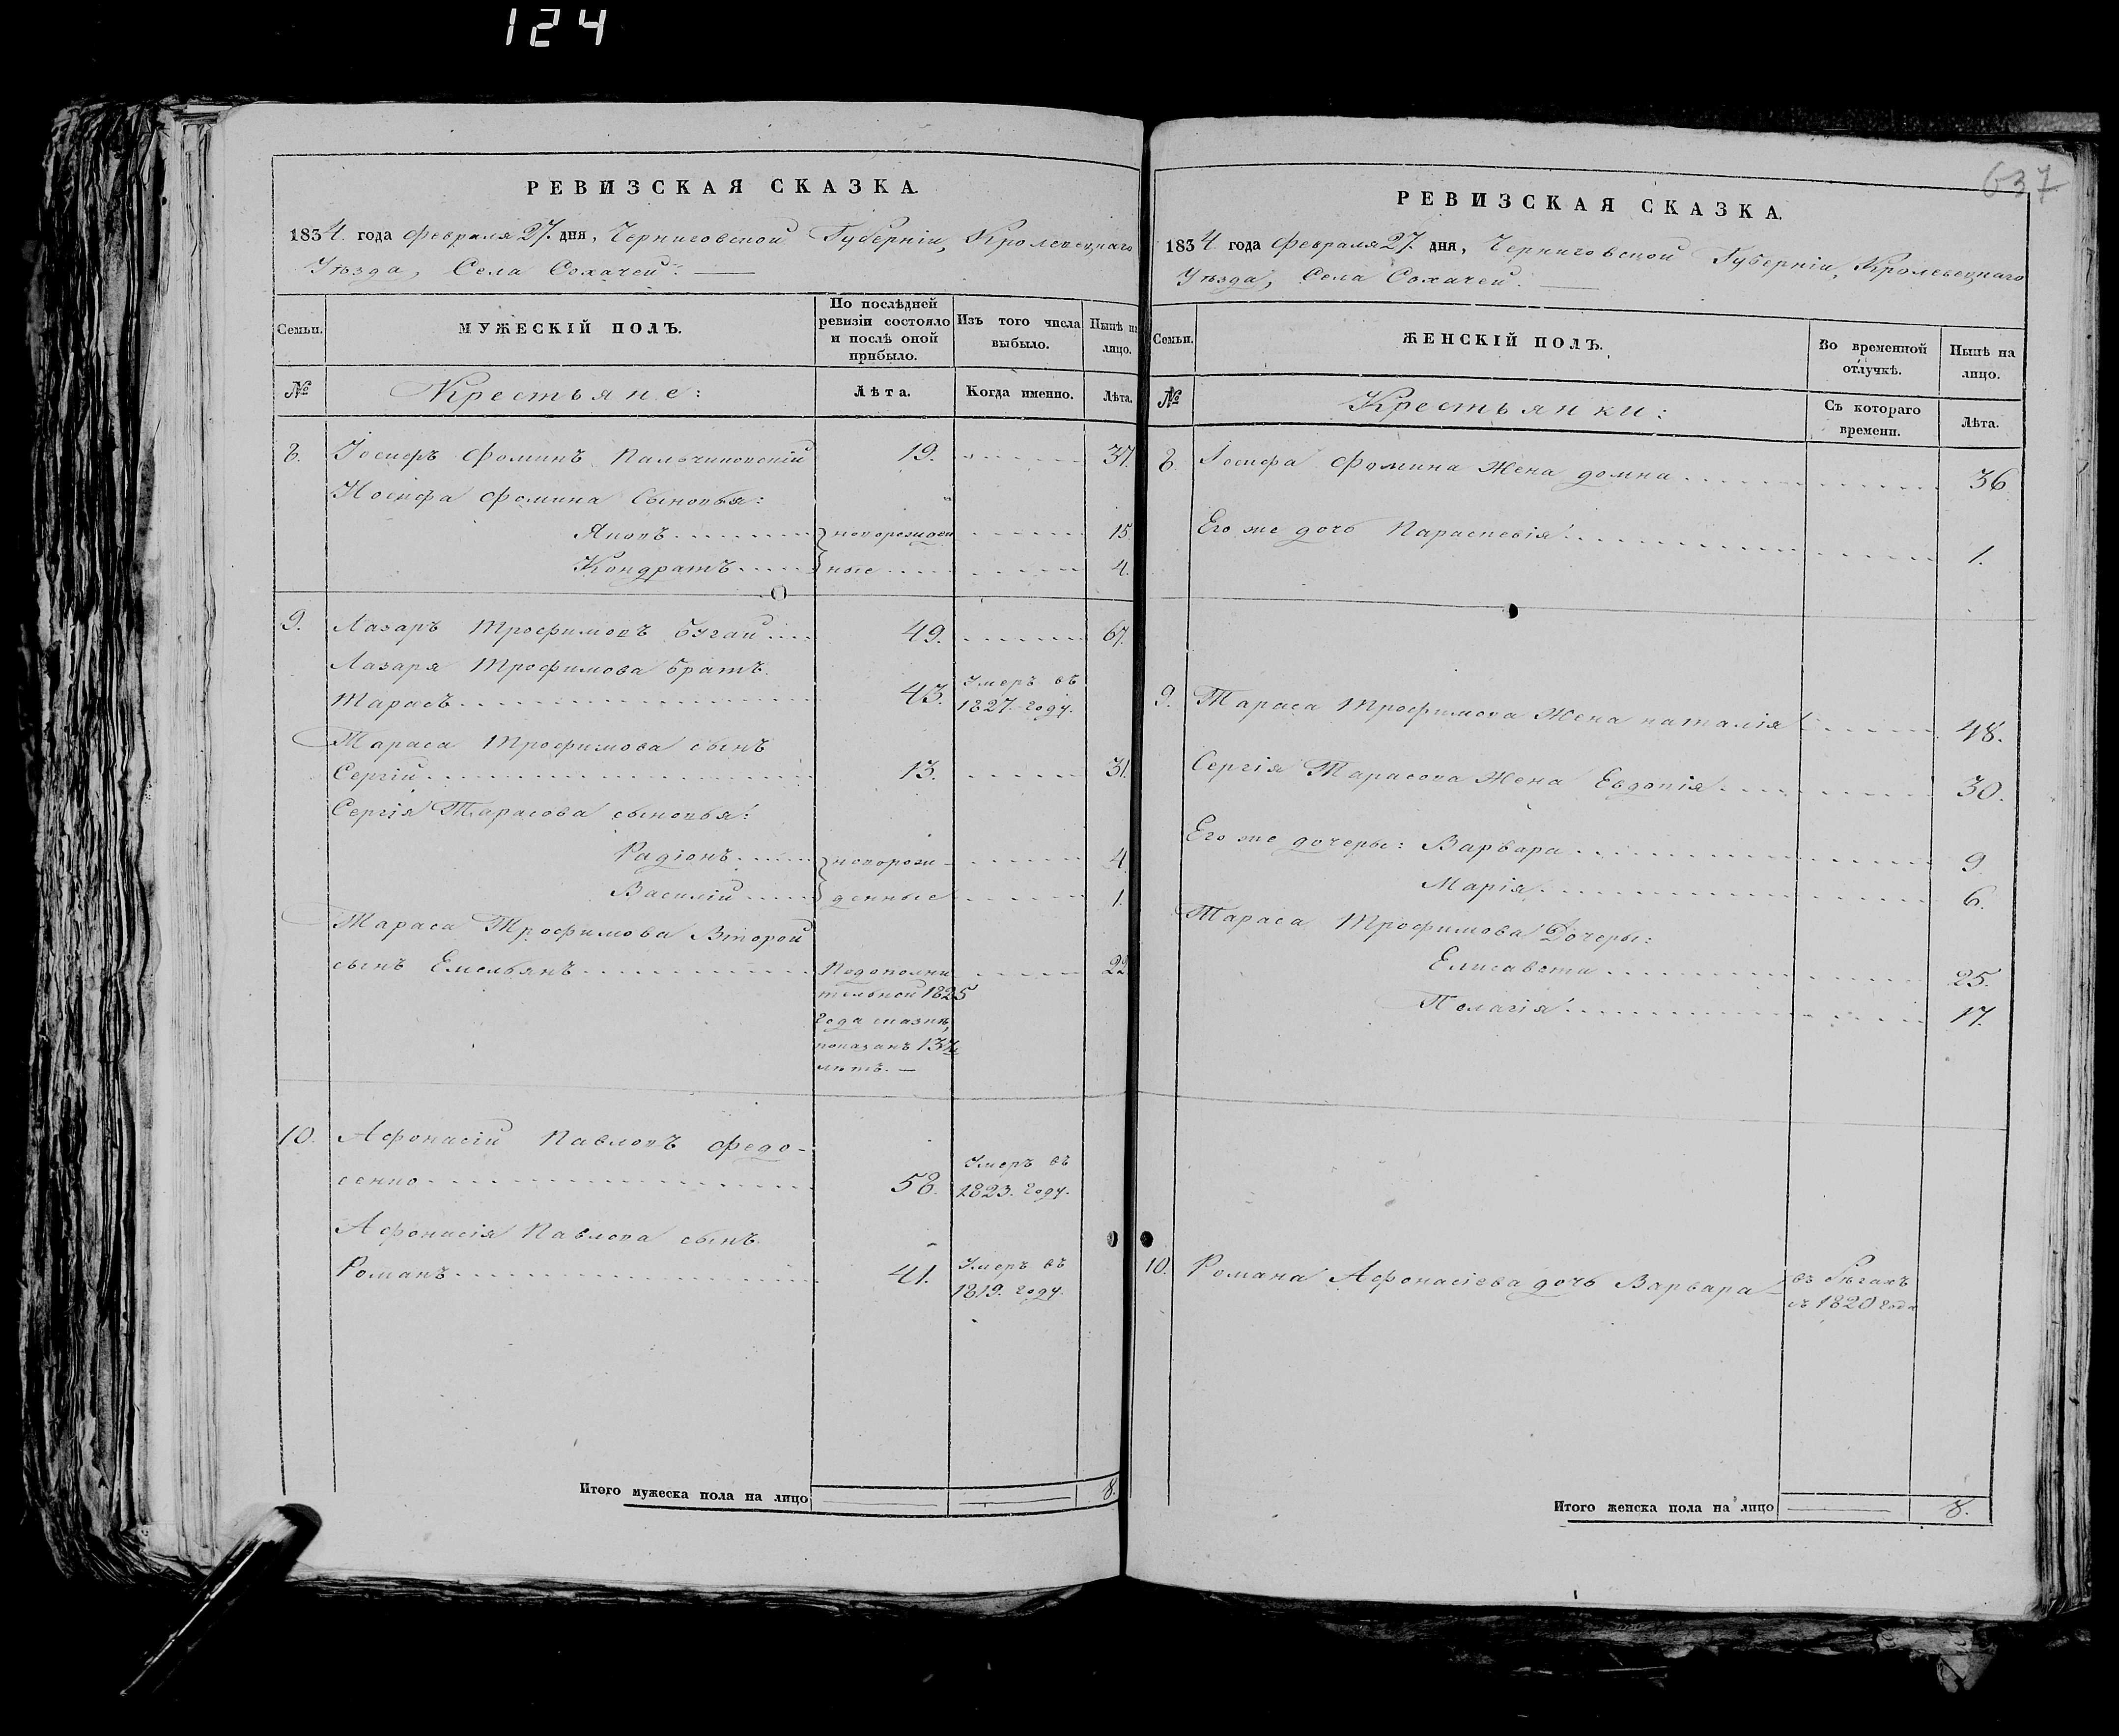 124
637
РЕВИЗСКАЯ СКАЗКА.
1834 года Февраля 27. дня, Черниговской Губерніи, Кролевецкаго
Уѣзда, Села Сохачей:
Семьи.
МУЖЕСКІЙ ПОЛЪ.
По послѣдней ревизіи состояло и послѣ оной прибыло.
Изъ того числа выбыло.
Нынѣ на лицо.
№
Крестьяне:
Лѣта.
Когда именно.
Лѣта.
8. Іосифъ Фоминъ Пальчиковскій 19. 37.
Иосифа Фомина Сыновья:
Яковъ новорожден 15
Кондратъ ные 4.
9. Лазаръ Трофимовъ Бугай 49. 67.
Лазаря Трофимова братъ
Тарасъ 43. Умеръ въ 1827. году.
Тараса Трофимова сынъ
Сергій 13. 31.
Сергія Тарасова сыновья:
Радіонъ новорож- 4
Василій денные 1.
Тараса Трофимова Второй
сынъ Емельянъ Подополни 22
тельной 1825
года сказкѣ,
показанъ 13½
лѣтъ. —
10. Афонасій Павловъ Федо-
сенко 58. Умеръ въ 1823. году.
Афонасія Павлова сынъ
Романъ 41. Умеръ въ 1819. году.
Итого мужеска пола на лицо 8.
РЕВИЗСКАЯ СКАЗКА.
1834 года Февраля 27. дня, Черниговской Губерніи, Кролевецкаго
Уѣзда, Села Сохачей.
Семьи.
ЖЕНСКІЙ ПОЛЪ.
Во временной отлучкѣ.
Нынѣ на лицо.
№
Крестьянки:
Съ котораго времени.
Лѣта.
8. Іосифа Фомина Жена домна 36
Его же дочь Параскевія 1.
9. Тараса Трофимова Жена наталія 48.
Сергія Тарасова Жена Евдокія 30.
Его же дочеры: Варвара 9
Марія 6.
Тараса Трофимова Дочеры:
Елисавета 25.
Пелагія 17.
10. Романа Афонасіева дочь Варвара въ бѣгахъ
съ 1820 года
Итого женска пола на лицо 8.